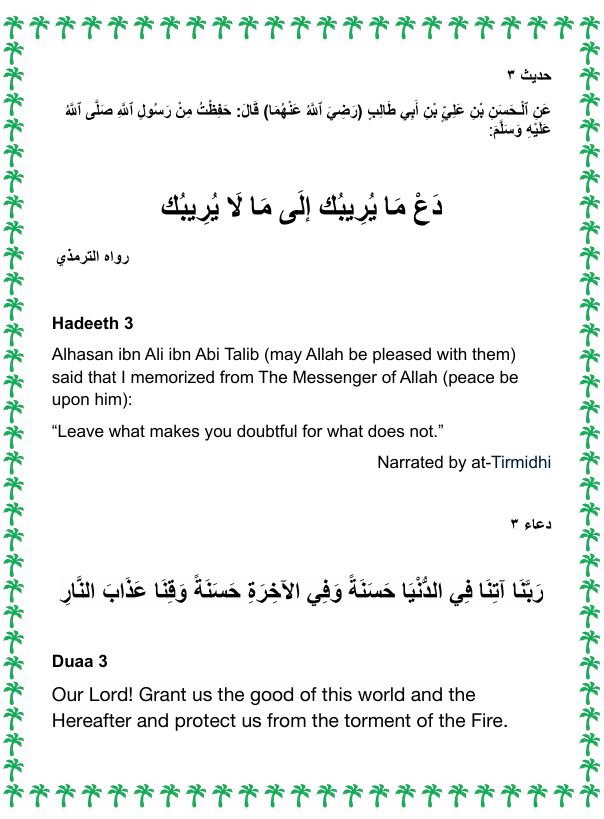 حديث ٣
عَنِ ٱلْحَسَنِ بْنِ عَلِيِّ بْنِ أَبِي طَالِبٍ (رَضِيَ ٱللَّهُ عَنْهُمَا) قَالَ: حَفِظْتُ مِنْ رَسُولِ ٱللَّهِ صَلَّى ٱللَّهُ
عَلَيْهِ وَسَلَّمَ:
دَعْ مَا يُرِيبُك إلَى مَا لَا يُرِيبُك
رواه الترمذي
Hadeeth 3
Alhasan ibn Ali ibn Abi Talib (may Allah be pleased with them)
said that I memorized from The Messenger of Allah (peace be
upon him):
“Leave what makes you doubtful for what does not.”
Narrated by at-Tirmidhi
دعاء ٣
رَبَّنَا آتِنَا فِي الدُّنْيَا حَسَنَةً وَفِي الآخِرَةِ حَسَنَةً وَقِنَا عَذَابَ النَّارِ
Duaa 3
Our Lord! Grant us the good of this world and the
Hereafter and protect us from the torment of the Fire.